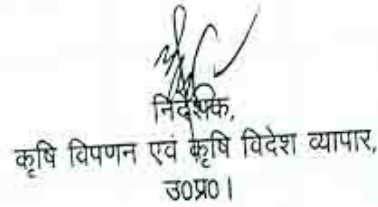 निदेशक,
कृषि विपणन एवं कृषि विदेश व्यापार,
उ0प्र0।